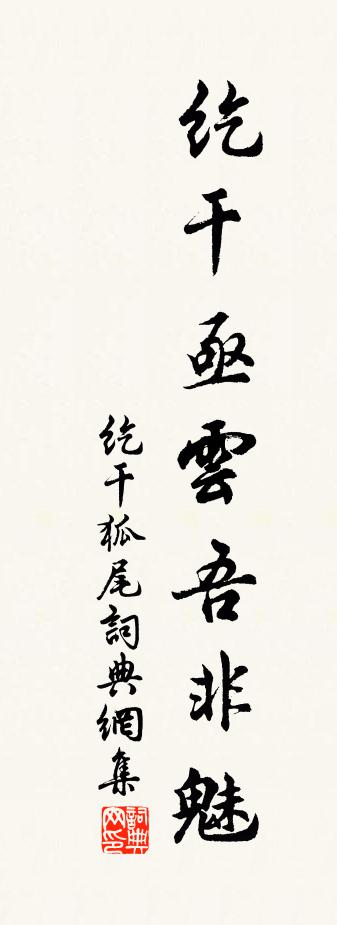 紇干亟雲吾非魅
紇干狐尾詞典網集
詞典网印